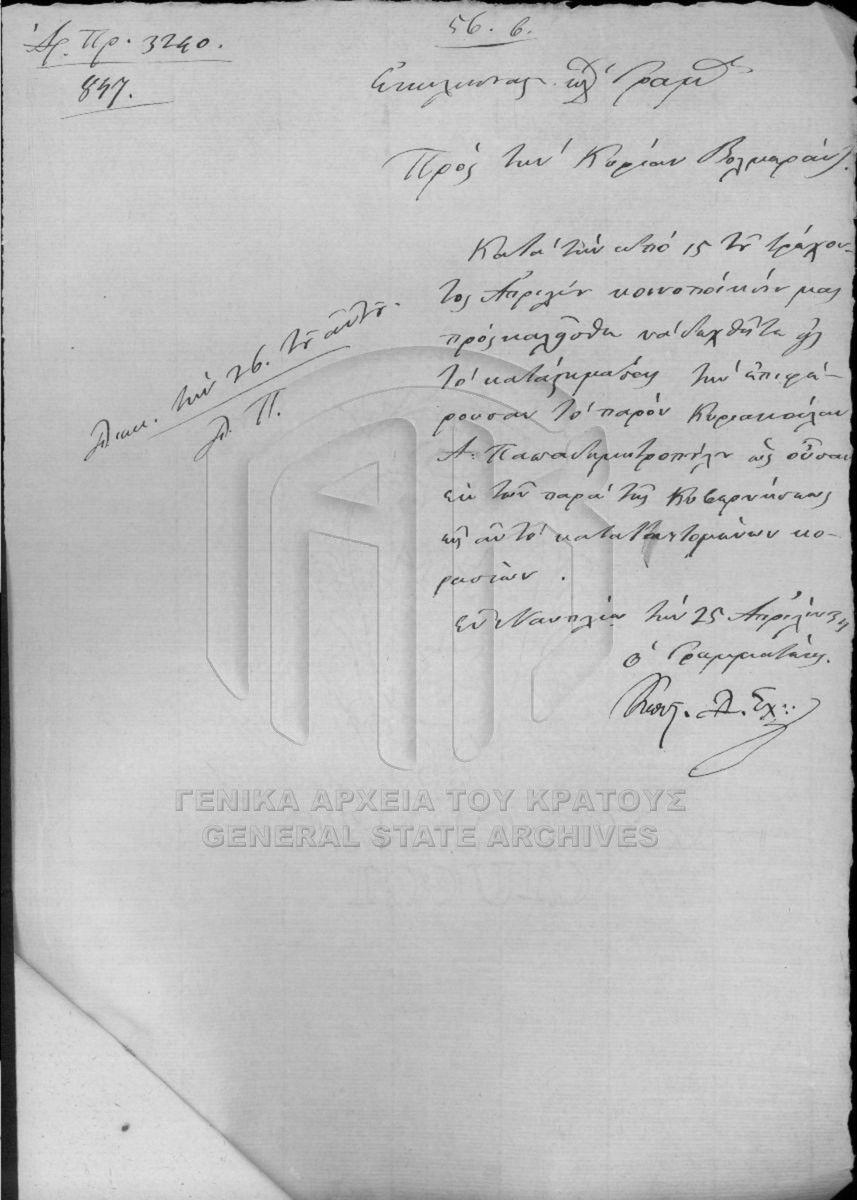 Ἀρ. Πρ. 3240.
847.
56. β.
Ἐκκλησιαστ. κλ Γραμ
Πρὸς τὴν Κυρίαν Βολμεράνζ.
Κατὰ τὴν ἀπὸ 15 τοῦ τρέχον-
τος Ἀπριλίου κοινοποίησίν μας
προσκαλεῖσθε νὰ δεχθῆτε εἰς
τὸ κατάστημά σας τὴν ἐπιφέ-
ρουσαν τὸ παρὸν Κυριακούλαν
Α. Παπαδημητροπούλου ὡς οὖσαν
ἐκ τῶν παρὰ τῆς Κυβερνήσεως
εἰς αὐτὸ κατατ κο-
ρασίων.
Ἐν Ναυπλίῳ τὴν 25 Ἀπριλίου 34
ὁ Γραμματεύς.
Κωνστ. Δ. Σχ:
τὴν 26. τοῦ αὐτοῦ.
ΓΕΝΙΚΑ ΑΡΧΕΙΑ ΤΟΥ ΚΡΑΤΟΥΣ
GENERAL STATE ARCHIVES